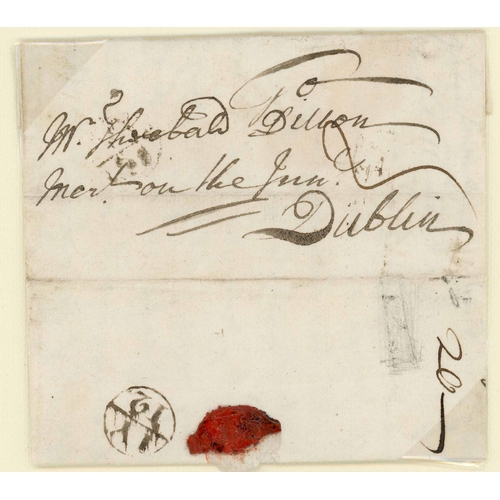 To
Mr. Theobald Dillon
Mert. on the Inn
Dublin
26